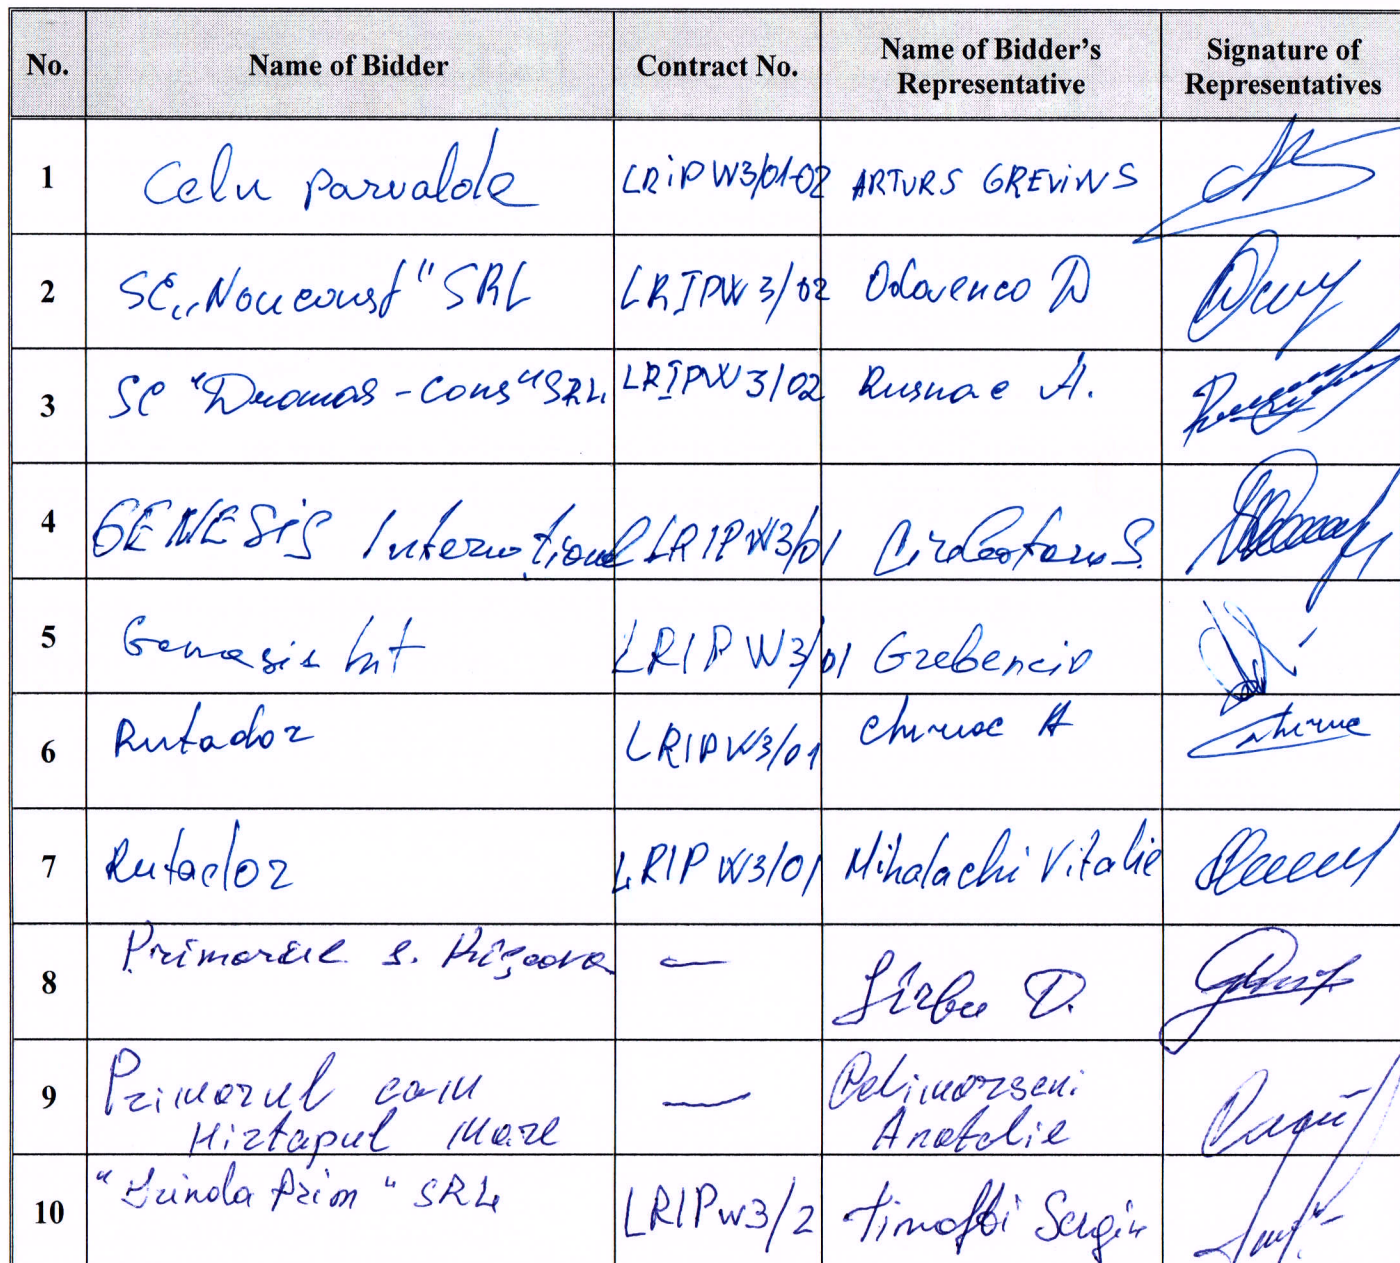 No. Name of Bidder Contract No. Name of Bidder's Representative Signature of Representatives
1 Celu parvalde LRIPW3/01-02 ARTURS GREVINS
2 SC „Nouconst" SRL LRIPW3/02 Odovenco D
3 SC "Dromas-Cons" SRL LRIPW3/02 Rusnac A.
4 GENESIS International LRIPW3/01 S.
5 Genesis Int LRIPW3/01 Grebencio
6 Rutador LRIPW3/01 Chiriac A
7 Rutador LRIPW3/01 Mihalachi Vitalie
8 Primarul s. — Sîrbu D.
9 Primarul com — 
Hirtopul Mare Anatolie
10 Prim" SRL LRIPW3/2 Timofti Sergiu